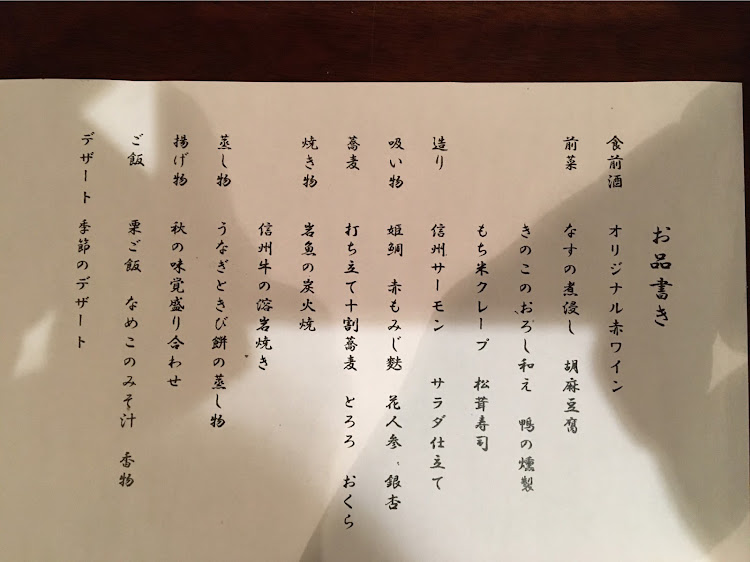 お品書き
食前酒　オリジナル赤ワイン
前菜　なすの煮浸し　胡麻豆腐
きのこのおろし和え　鴨の燻製
もち米クレープ　松茸寿司
造り　信州サーモン　サラダ仕立て
吸い物　姫鯛　赤もみじ麩　花人参、銀杏
蕎麦　打ち立て十割蕎麦　とろろ　おくら
焼き物　岩魚の炭火焼
信州牛の溶岩焼き
蒸し物　うなぎときび餅の蒸し物
揚げ物　秋の味覚盛り合わせ
ご飯　栗ご飯　なめこのみそ汁　香物
デザート　季節のデザート